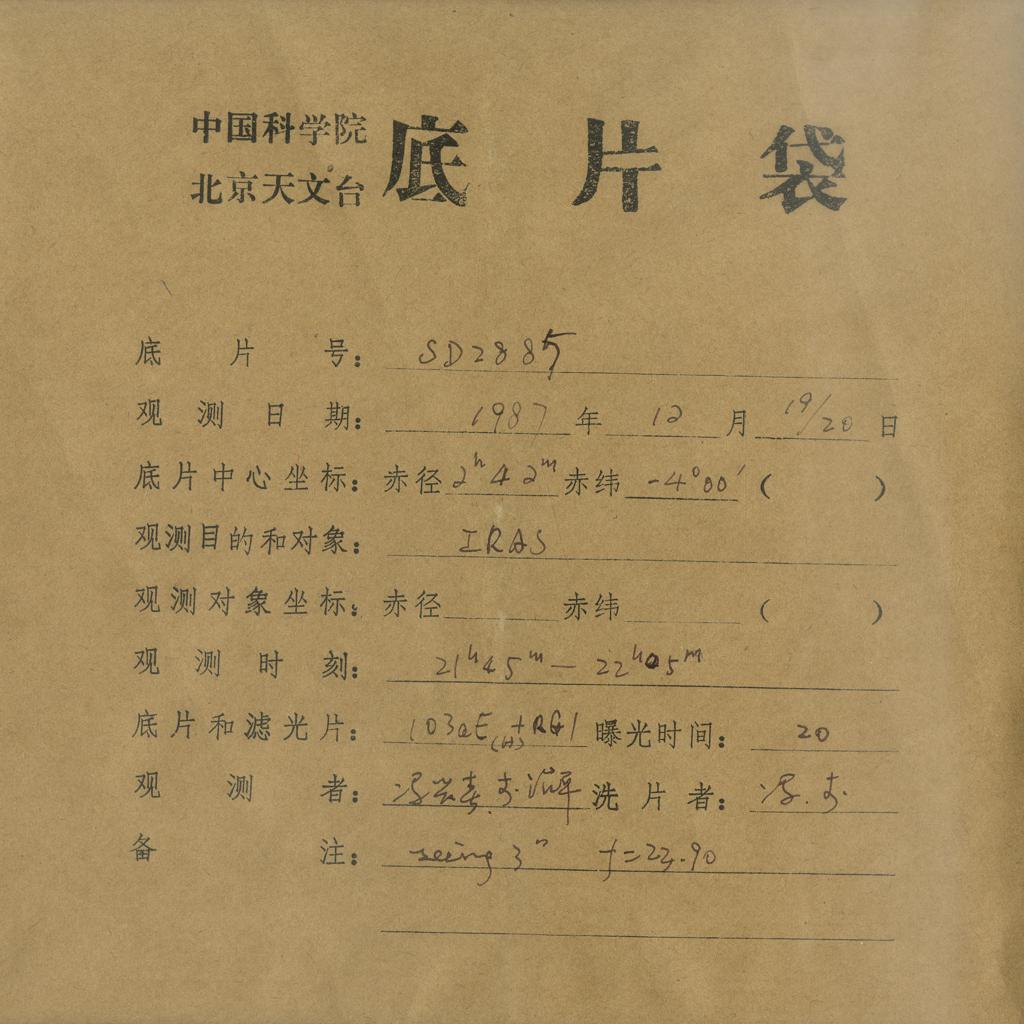 中国科学院
北京天文台 底片袋
底片号: SD2885
观测日期: 1987年12月19/20日
底片中心坐标: 赤径 2h42m 赤纬 -4°00′ ( )
观测目的和对象: IRAS
观测对象坐标: 赤径 赤纬 ( )
观测时刻: 21h45m — 22h05m
底片和滤光片: 103aE(H)+RG1 曝光时间: 20
观测者: 洗片者:
备注: seeing 3" f=23.90